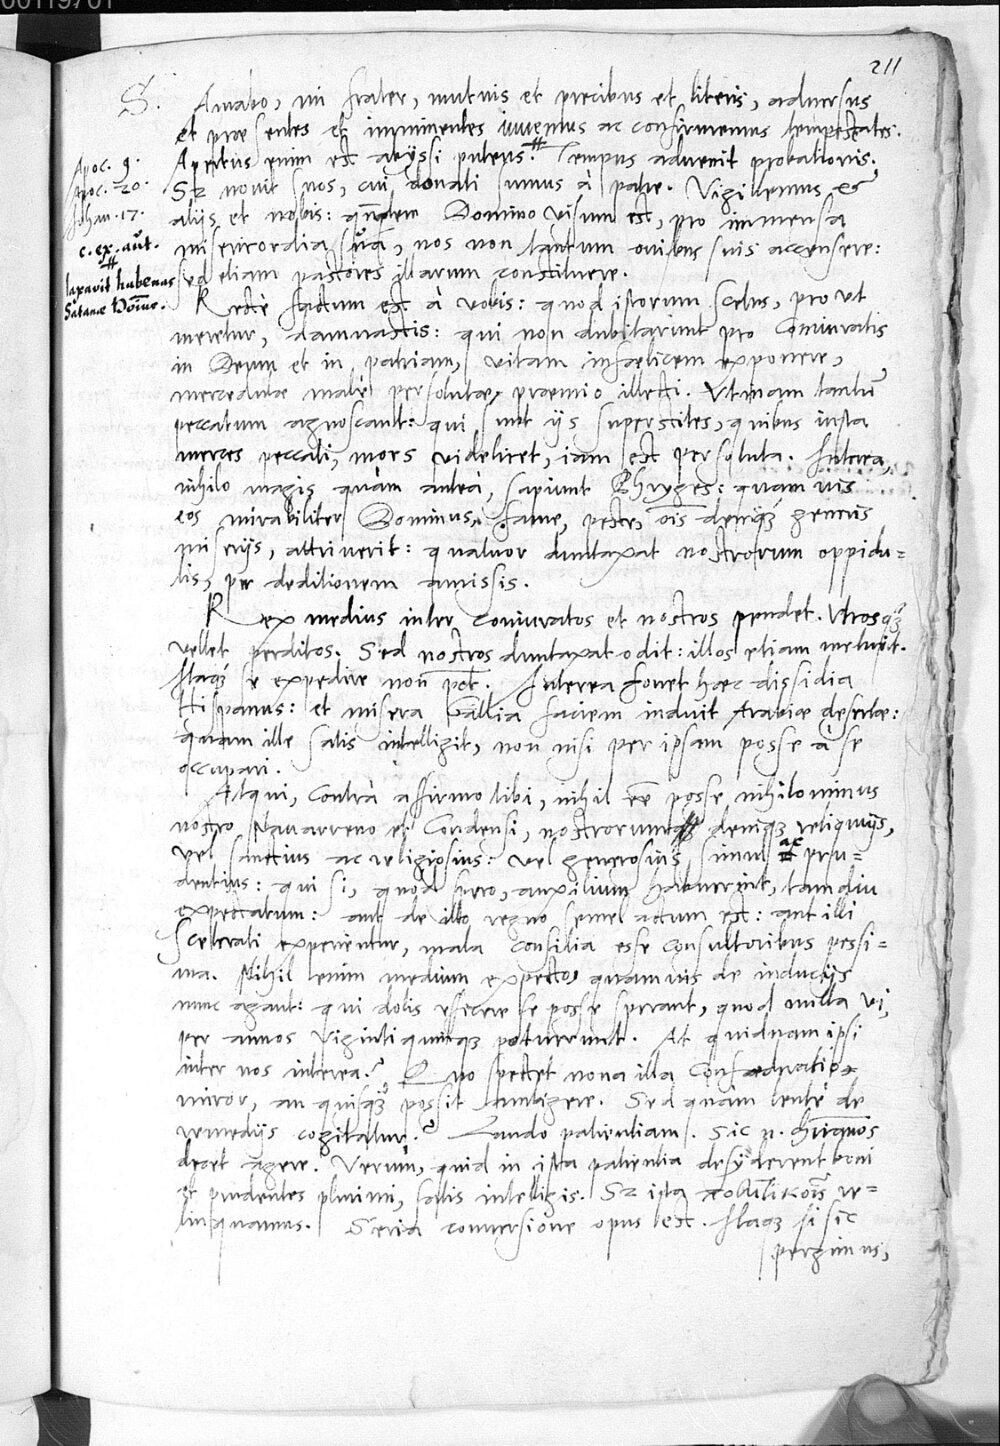 00119701
211
S. Amabo, mi frater, mutuis et precibus et literis, aduersus
et praesentes et imminentes iuuemus ac confirmemus tempestates.
Apertus enim est abyssi puteus.# Tempus aduenit probationis.
Sz nouit suos, cui donati sumus à patre. Vigilemus, &
alijs et nobis: quãdem Domino visum est, pro immensa
misericordia sua, nos non tantum ouibus suis accensere:
sed etiam pastores illarum constituere.
Apoc. 9.
Apoc. 20.
Johan. 17.
c. ex. aut.
#
laxauit habenas
Satanae Domĩus.
Recte factum est à vobis: quod istorum scelus, pro vt
meretur, damnastis: qui non dubitarunt pro Coniuratis
in Deum et in patriam, vitam infaelicem exponere,
mercedulae malè persolutae, praemio illecti. Vtinam tantũ
peccatum agnoscant: qui sunt ijs superstites, quibus iusta
merces peccati, mors videlicet, iam est persoluta. Interea,
nihilo magis quàm anteà, sapiunt Phryges: quamuis
eos mirabiliter Dominus, fame, peste, oĩs deniqз generis
miserijs, attriuerit: quatuor duntaxat nostrorum oppidu=
lis, per deditionem amissis.
Rex medius inter coniuratos et nostros pendet. Vtrosqз
vellet perditos. Sed nostros duntaxat odit: illos etiam metuit.
Itaqз se expedire non põt. Interea fouet haec dissidia
Hispanus: et misera Gallia faciem induit Arabiae desertae:
quam ille satis intelligit, non nisi per ipsam posse à se
occupari.
Atqui, Contrà affirmo tibi, nihil eẽ posse nihilominus
nostro Nauarreno et Condensi, nostrorum deniqз reliquijs,
vel sanctius ac religiosius: vel generosius, simul ac pru=
dentius: qui si, quod spero, auxilium habuerint, tamdiu
expectatum: aut de illo regno semel actum est: aut illi
Scelerati experientur, mala Consilia esse Consultoribus pessi=
ma. Nihil enim medium expecto, quamuis de inducijs
nunc agant: qui dolis efficere se posse sperant, quod nulla vi,
per annos vigintiquinqз potuerunt. At quidnam ipsi
inter nos interea? Quo spectet noua illa Confaederatio,
miror, an quisqз possit ambigere. Sed quàm lentè de
remedijs cogitatur? Laudo patientiam. Sic n. chrianos
decet agere. Verum, quid in ista patientia desyderent boni
et prudentes plurimi, satis intelligis. Sz ista πολιτικοῖς re=
linquamus. Seria conuersione opus est. Itaqз si sic
pergimus,